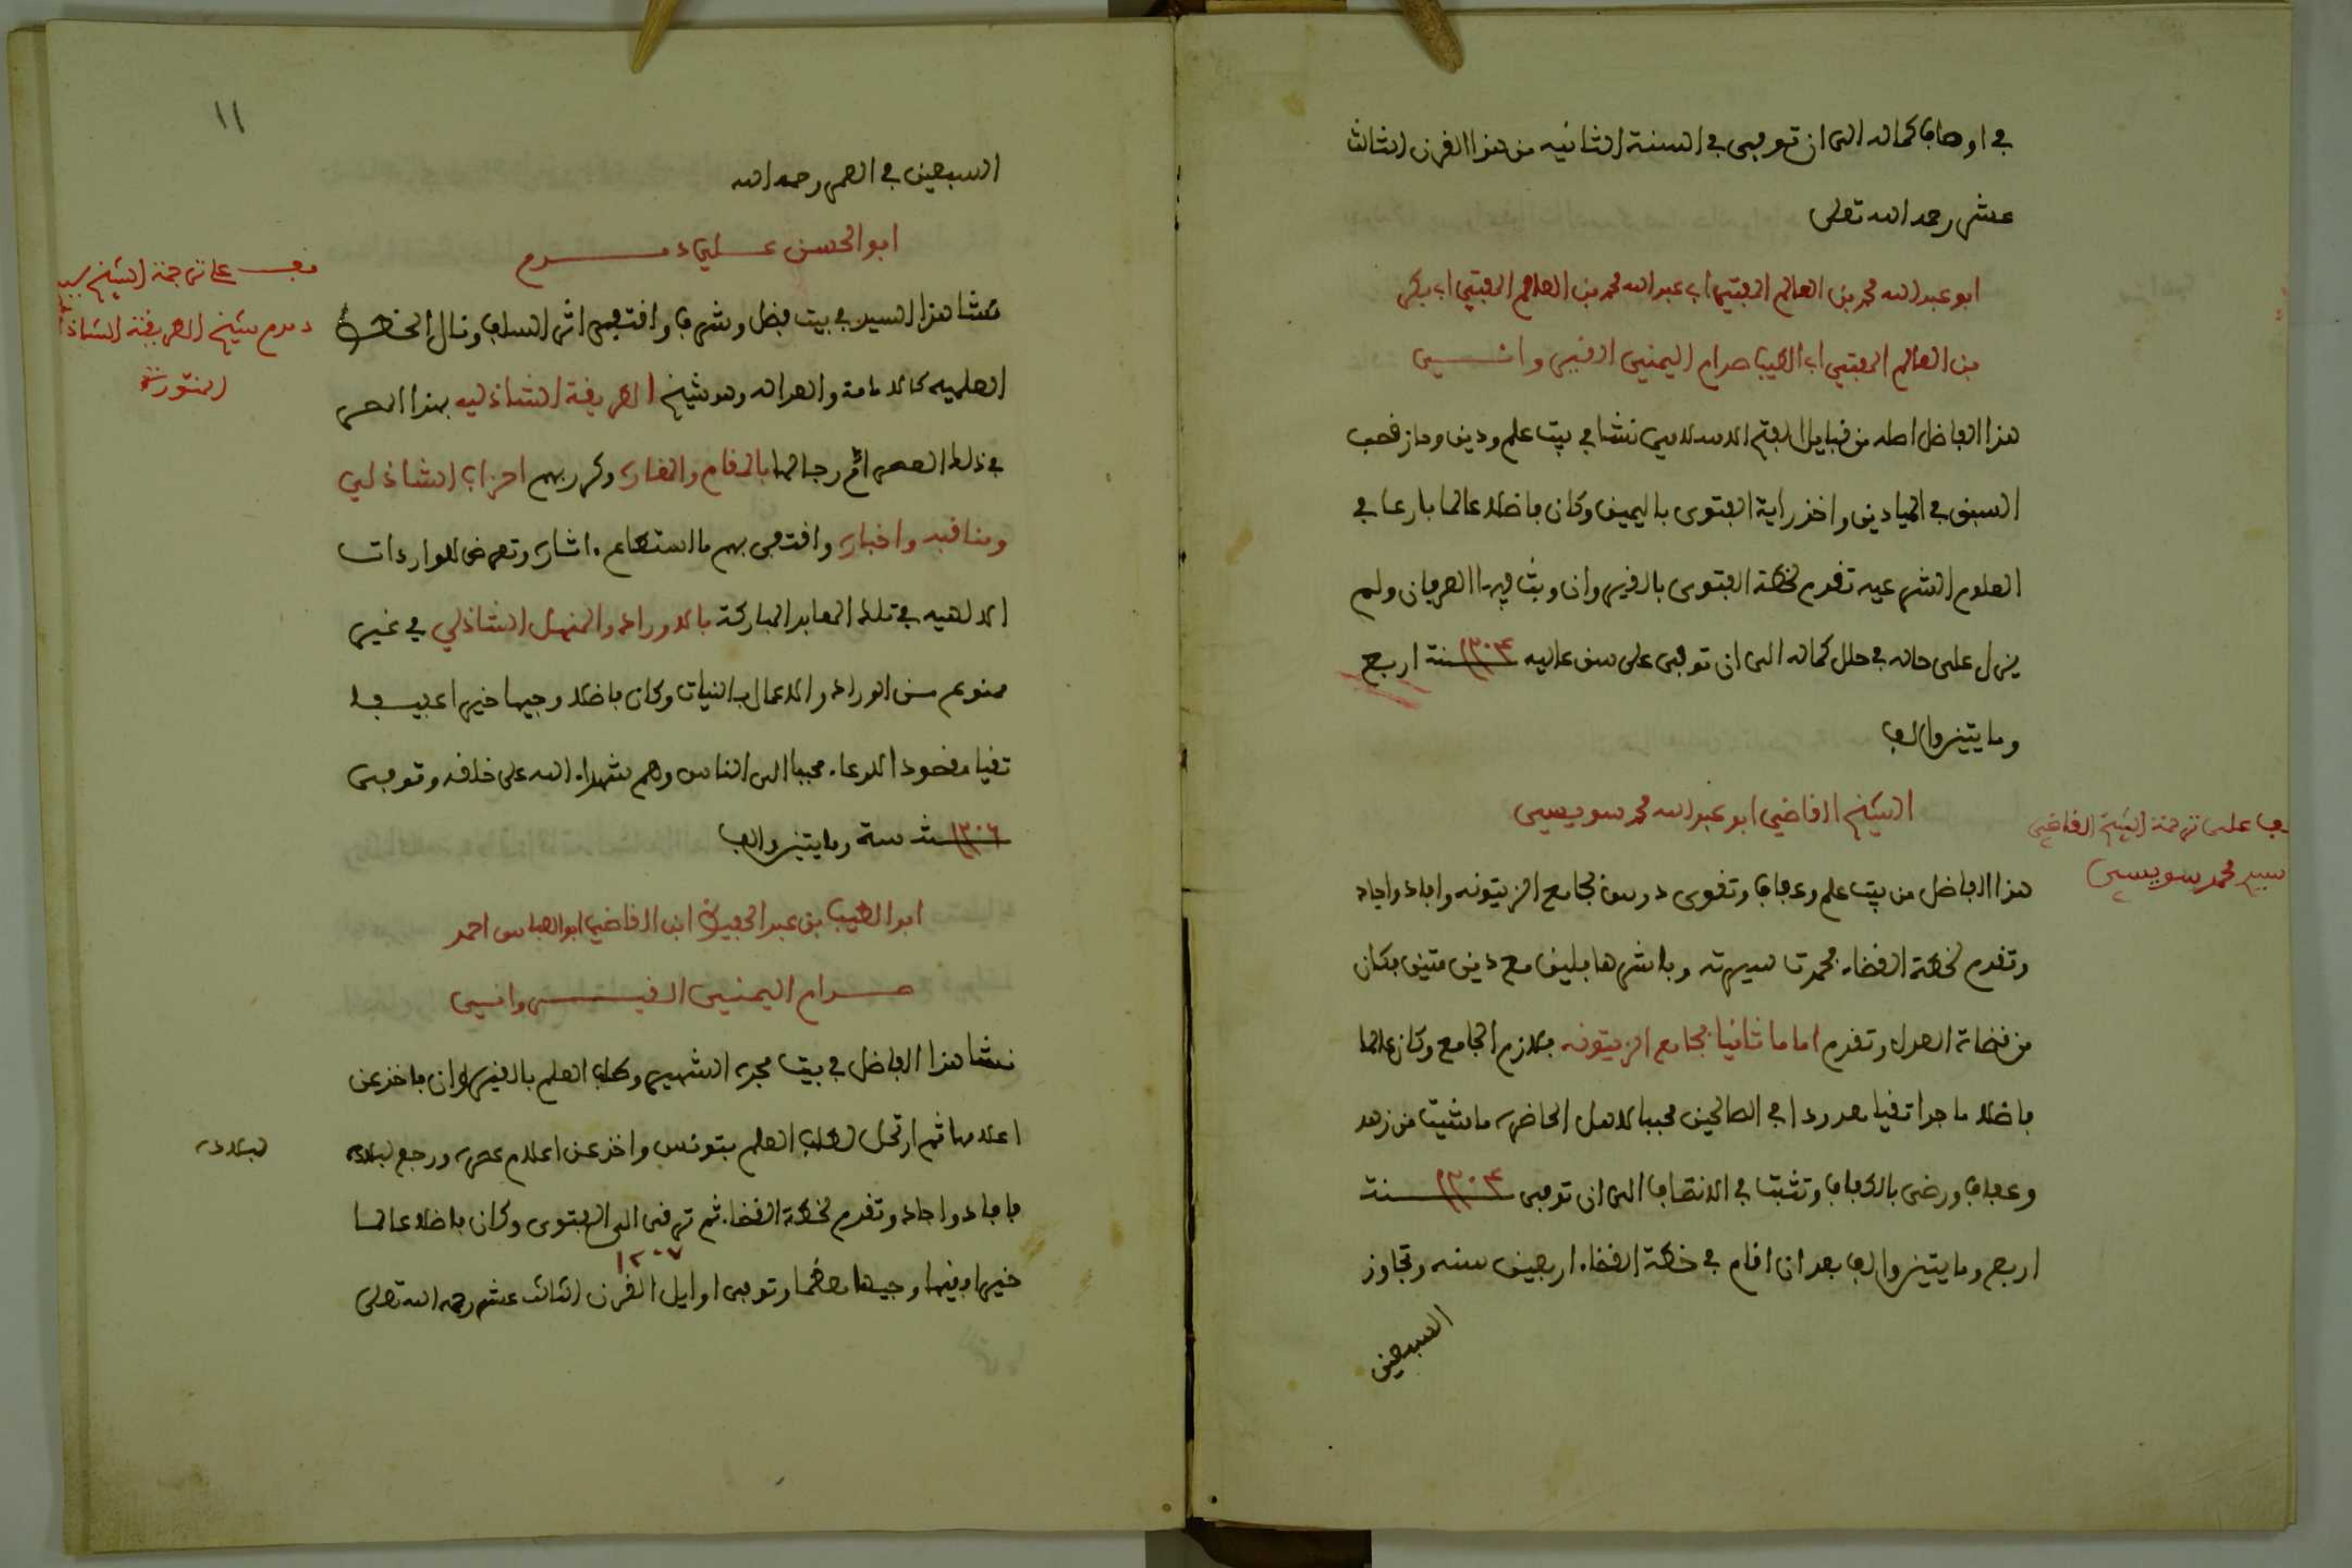 في اوصاف كماله الى ان توفي في السنة الثانيه من هذا القرن الثالث
عشر رحمه الله تعلى
ابو عبد الله محمد بن العالم المفتي اب عبد الله محمد بن العالم المفتي اب بكر
بن العالم المفتي اب الطيب صدام اليمني القيروانــي
هذا الفاضل اصله من قبايل الفتح الاسلامي نشا في بيت علم ودين وحاز قصب
السبق في الميادين واخذ راية الفتوى باليمين وكان فاضلا عالما بارعا في
العلوم الشرعيه تقدم لخطة الفتوى بالقيروان وبث فيها العرفان ولم
يزل على حاله في حلل كماله الى ان توفي على سن عاليه ١٢٠٤ سنة اربع
ومايتين والف
الشيخ القاضي ابو عبد الله محمد سويسي
قف على ترجمة الشيخ القاضي
سيدي محمد سويسي
هذا الفاضل من بيت علم وعفاف وتقوى درس بجامع الزيتونه وافاد واجاد
وتقدم لخطة القضاء فحمدت سيرته وباشرها بلين مع دين متين فكان
من قضاة العدل وتقدم اماما ثانيا بجامع الزيتونه فلازم الجامع وكان عالما
فاضلا ماجدا تقيا معدودا في الصالحين محببا لاهل الحاضره ما شيت من زهد
وعفاف ورضى بالكفاف وتثبت في الانصاف الى ان توفي ١٢٠٤ سنة
اربع ومايتين والف بعد ان اقام في خطة القضاء اربعين سنه وتجاوز
السبعين
١١
السبعين في العمر رحمه الله
ابو الحسن علي درم
نشا هذا السيد في بيت فضل وشرف واقتفى اثر السلف ونال الخطط
قف على ترجمة الشيخ سيدي
درم شيخ الطريقة الشاذلية
العلميه كالامامة والعداله وهو شيخ الطريقة الشاذليه بهذا المصر
في ذلك العصر اتم رجالها بالمقام والمغاره وكرر بهم احزاب الشاذلي
ومناقبه واخباره واقتفى بهم ما استطاع اثاره وتعرض للواردات
الالهيه في تلك المعابد المباركة بالاوراد والمنهل الشاذلي في غير
ممنوع من الوراد والاعمال بالنيات وكان فاضلا وجيها خيرا عفيفا
تقيا مقصودا للدعاء محببا الى الناس وهم شهداء الله على خلقه وتوفي
١٢٠٦ سنة ستة ومايتين والف
ابو الطيب بن عبد الحفيظ ابن القاضي ابو العباس احمد
صدام اليمني القيروانسي
نشا هذا الفاضل في بيت مجده الشهير وطلب العلم بالقيروان فاخذ عن
اعلامها ثم ارتحل لطلب العلم بتونس واخذ عن اعلام عصره ورجع لبلاده
لبلاده
فافاد واجاد وتقدم لخطة القضاء ثم ترقى الى الفتوى وكان فاضلا عالما
١٢٠٧
خيرا فقيها وجيها معظما وتوفي اوايل القرن الثالث عشر رحمه الله تعلى